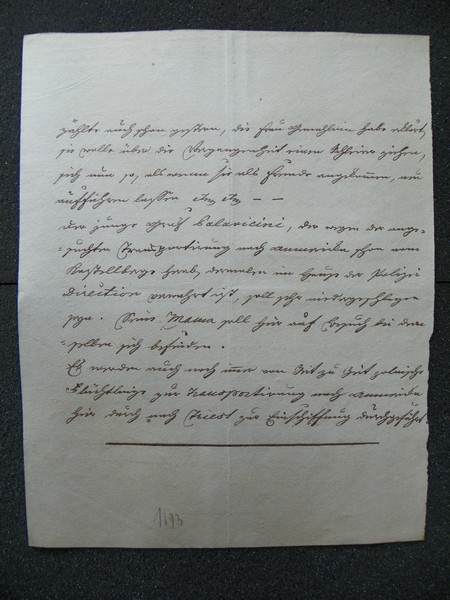 zählte auch schon gestern, die Frau Gemahlinn habe erklärt,
sie wolle über die Vergangenheit einen Schleier ziehen,
sich nun so, als wenn sie als Fremde angekommen, neu
aufführen lassen etc etc — —
Der junge Graf Palavicini, der wegen der ange-
=suchten Transportirung nach Amerika schon vom
Kastellberge herab, dermalen im Hause der Polizei
Direction verwahrt ist, soll sehr niedergeschlagen
seyn. Seine Mama soll hier auf Besuch bei dem-
=selben sich befinden.
Es werden auch noch immer von Zeit zu Zeit polnische
Flüchtlinge zur Transportirung nach Amerika
hier durch nach Triest zur Einschiffung durchgeführt